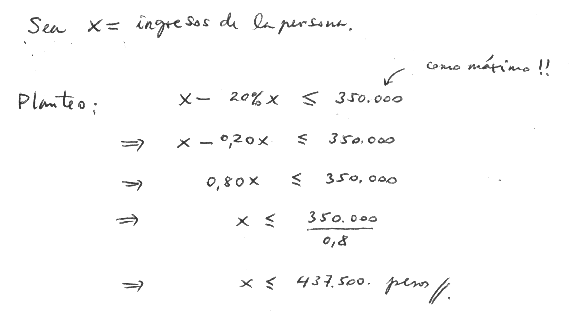 Sea x = ingresos de la persona.
como máximo !!
Planteo: x - 20% x ≤ 350.000
⇒ x - 0,20x ≤ 350.000
⇒ 0,80x ≤ 350.000
⇒ x ≤ 350.000
0,8
⇒ x ≤ 437.500. pesos //.